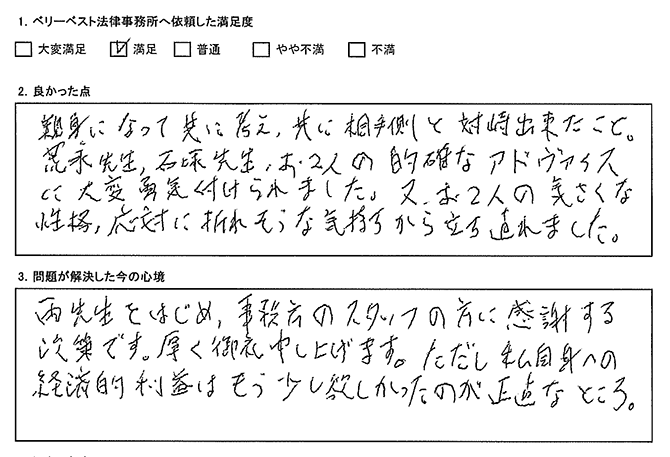 1. ベリーベスト法律事務所へ依頼した満足度
大変満足 満足 普通 やや不満 不満
2. 良かった点
親身になって共に考え、共に相手側と対峙出来たこと。
荒永先生、石塚先生、お2人の的確なアドヴァイス
に大変勇気付けられました。又、お2人の気さくな
性格、応対に折れそうな気持ちから立ち直れました。
3. 問題が解決した今の心境
両先生をはじめ、事務方のスタッフの方に感謝する
次第です。厚く御礼申し上げます。ただし私自身への
経済的利益はもう少し欲しかったのが正直なところ。